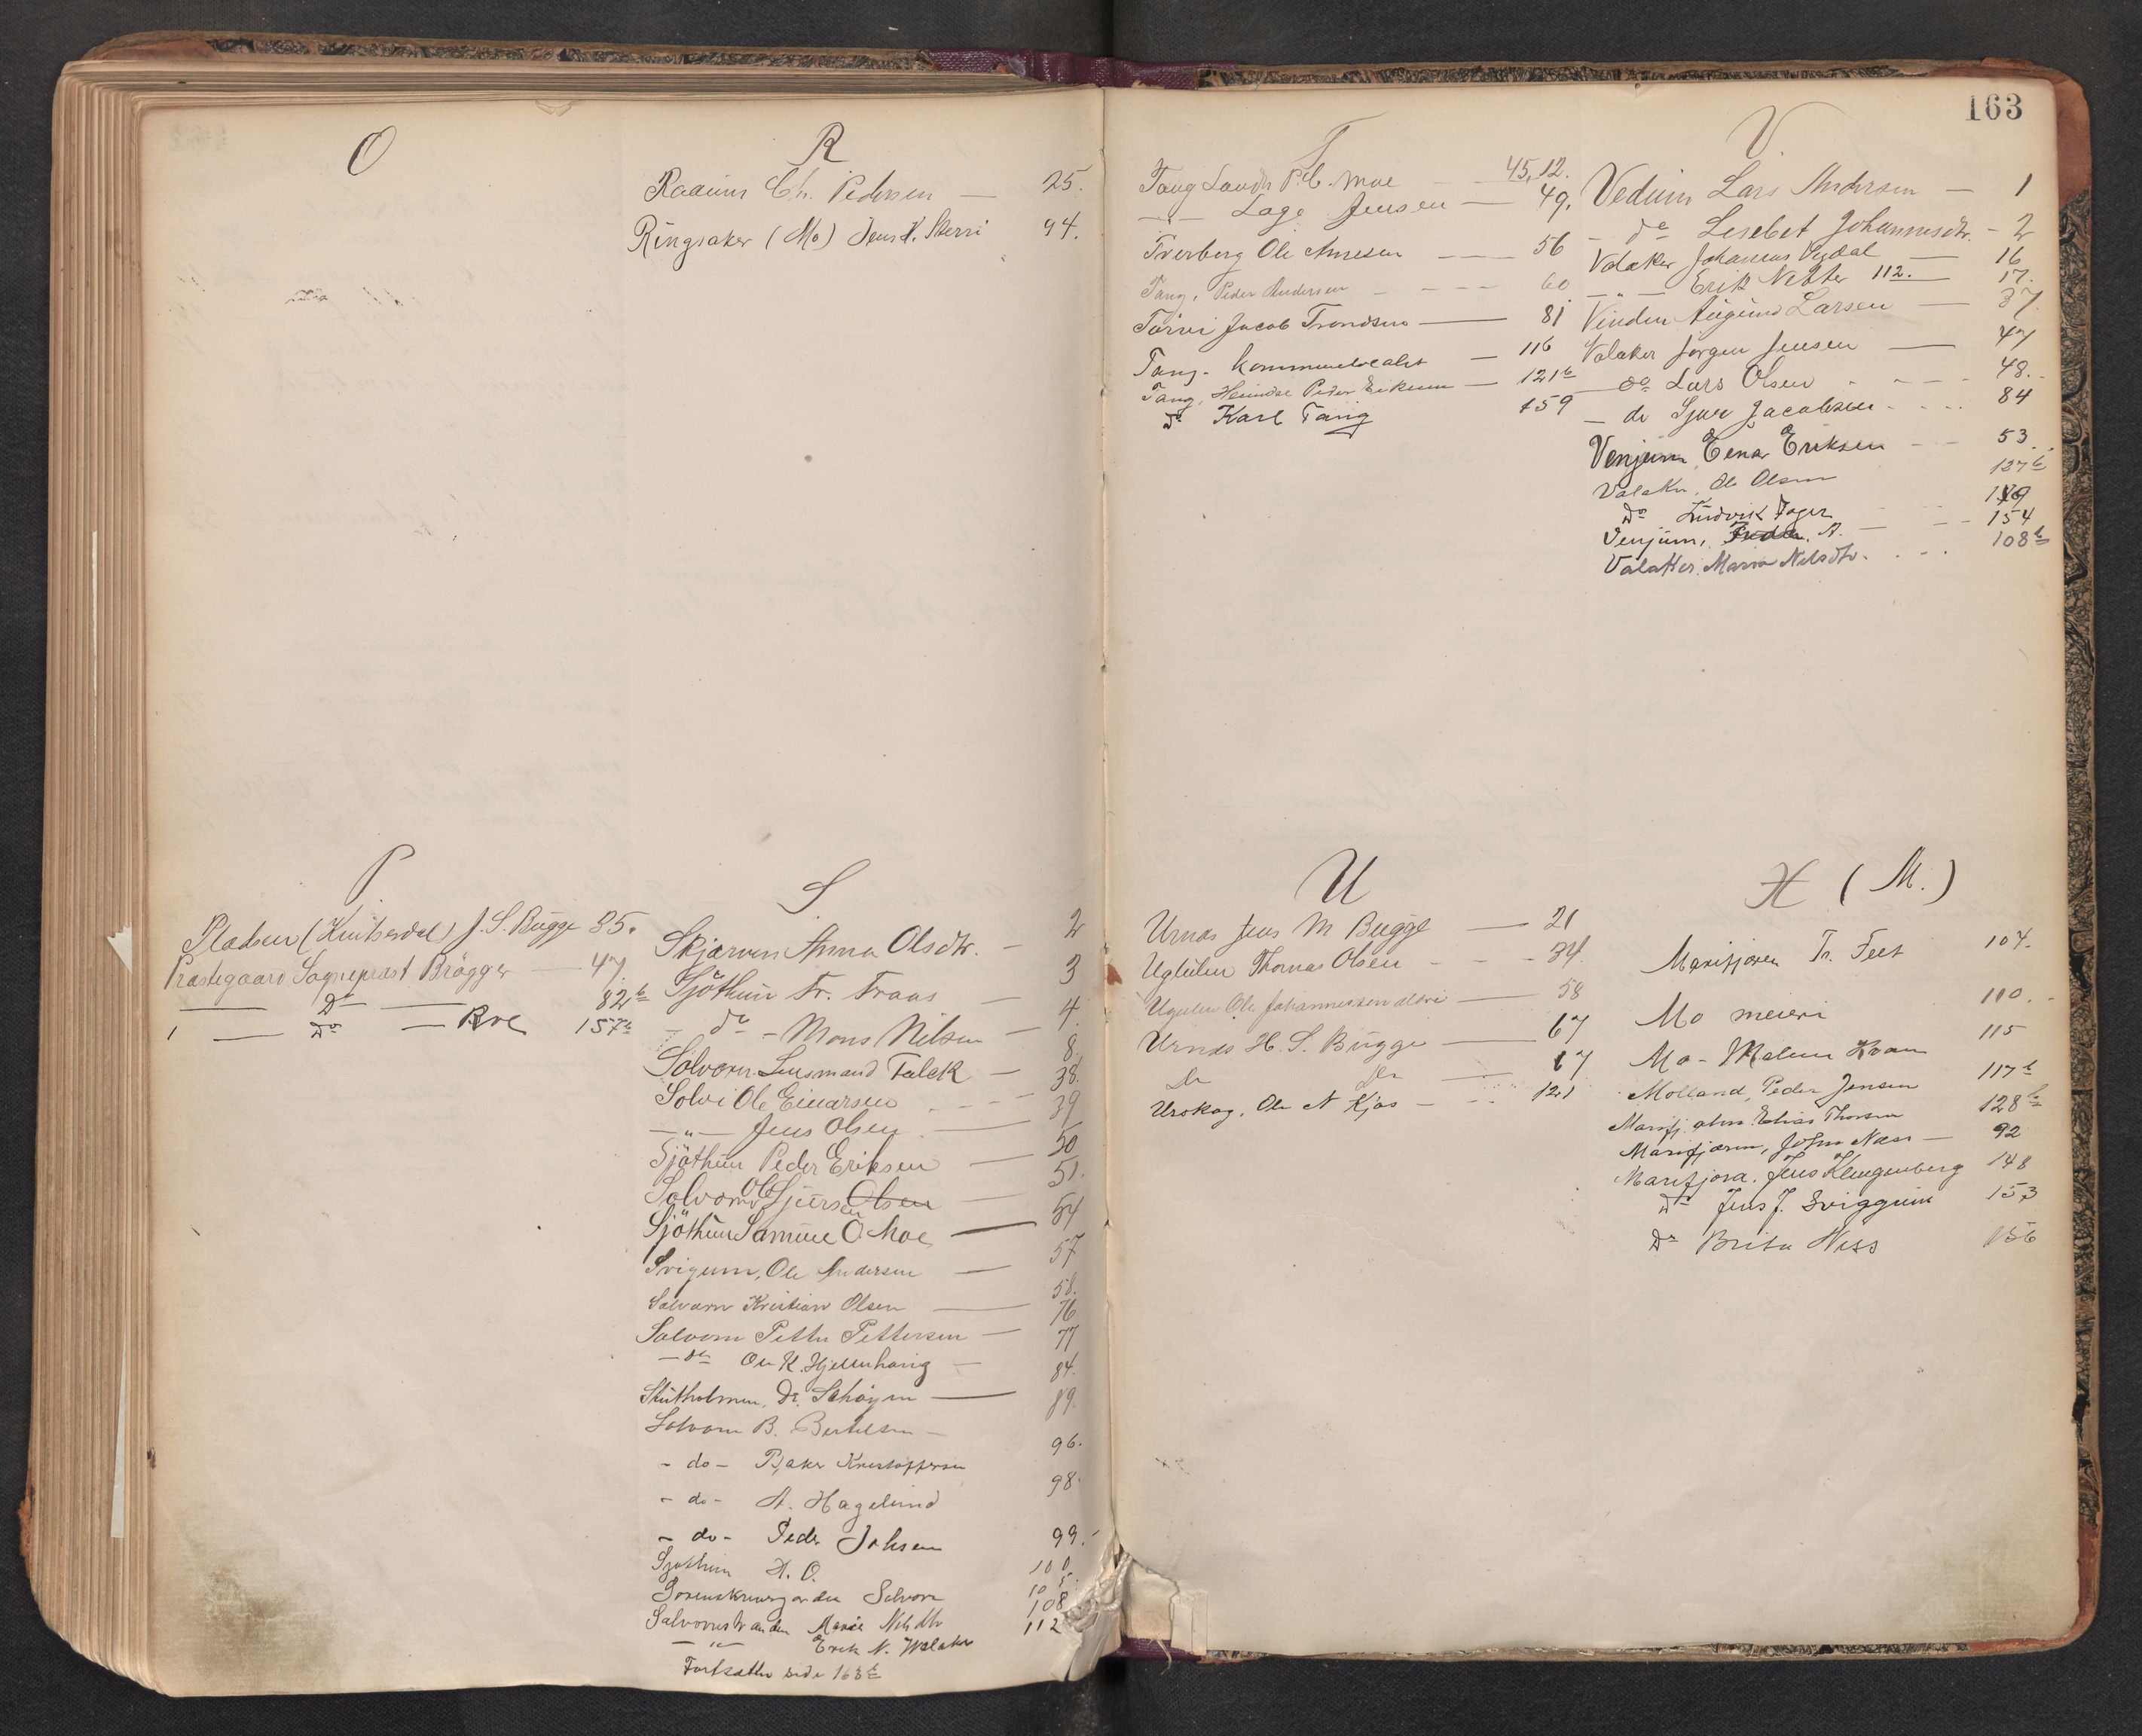 O
P.
Pladsen (Knitserdal) J. S. Bugge 35.
Præstegaard Sogneprest Brøgger — 47
— Do — 82 b
1 — Do — Roe 157 b
R
Raaum Ch. Pedersen — 25.
Ringsaker (Mo) Jens K. Skerri 94.
S
Skjærven Anna Olsdtr. — 2
Sjöthun Fr. Fraas — 3
— do — Mons Nilsen — 4
Solvorn Lensmand Falck — 8.
Solvi Ole Einarsen - - - 38.
— " — Jens Olsen — 39
Sjöthun Peder Eriksen — 50
Solvorn Ole Sjursen Olsen — 51.
Sjöthun Samuel O. Moe — 54
Svigum, Ole Andersen — 57
Solvorn Kristian Olsen — 58.
Solvorn Petter Pettersen — 76
— do Ole K. Hjellhaug — 77
Skutholmen, Dr. Schöyen — 84.
Solvorn B. Bertelsen — 89.
- do - Kristoffersen 96.
- do - A. Hagelund 98.
- do - Peder Johsen 99.-
Sjøthun H. O. 100
Solvorn 105.
Solvornstranden Marie Nilsdtr 108
— " — Erik N. Walaker 112
Fortsættes side 163 b
163
T
Tang Landh. P. C. Moe - - 45, 12.
— " — Lage Jensen — 49.
Tverberg Ole Annesen — 56
Tang, Peder Andersen - - - 60
Torvi Jacob Trondsen — 81
Tang. Kommunelocalet — 116
Tang, Heimdal Peder Eikum — 121 b
Do Karl Tang 159
U
Urnes Jens M Bugge — 21
Ugulen Thomas Olsen - - - 34.
Ugulen Ole Johannessen — 58
Urnes H. S. Bugge — 67
Do Do — 67
Urskog, Ole N Kjos - - - 121
V
Vedum Lars Andersen — 1
- do Lisebet Johannesdtr. - 2
Valaker Johannes Nydal — 16
— " — Erik N 112. — 17.
Vinden Augund Larsen — 37
Valaker Jørgen Jensen — 47
do Lars Olsen - - - - 48.-
— do Sjur Jacobsen - - - 84
Venjum, Einar Eriksen - - - 53.
Valaker, Ole Olsen 127 b
Do Ludvik Jager 149
Venjum, Feda A. — - - 154
Valaker, Maria Nilsdtr. - - - 108 b
H (M.)
Marifjøren Tr. Feet 104.
Mo meieri 110.-
Mo - Malum Kvam 115
Molland, Peder Jensen 117 b
Marifj. Elias Thorsen 128 b
Marifjæren, John Næss — 92
Marifjøra. Jens Klingenberg 148
Do Jens J. Sviggum 153
Do Brita Ness 156